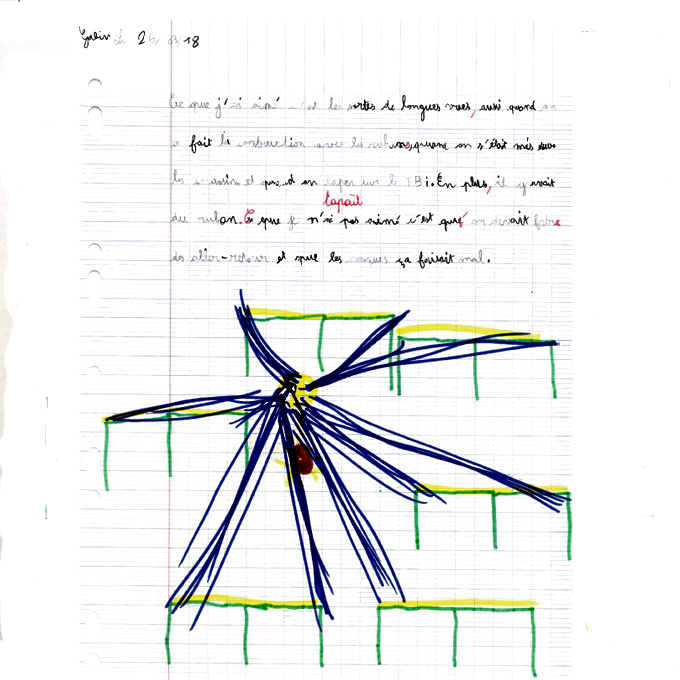 Galin L. 26/03/18
Ce que j'ai aimé c'est les sortes de longues vues, ausi quand on
a fait la construction avec les rubans, quand on s'était mis sur
les et quand on taper sur le TBi. En plus, il y avait
tapait
du ruban. Ce que je n'ai pas aimé c'est que on devait faire
des aller-retour et que les casques ça faisait mal.